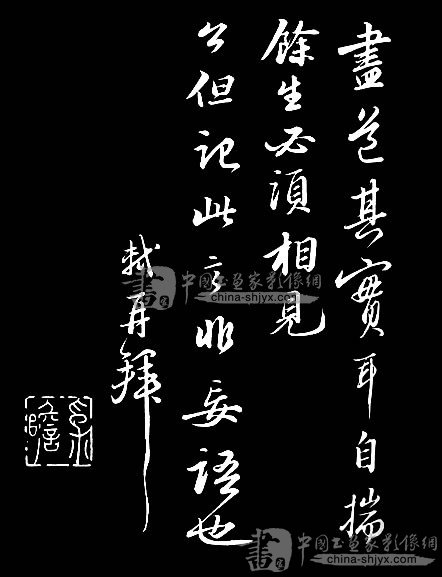 盡道其實耳自揣
餘生必須相見
公但記此言非妄語也
軾再拜
書
中國書畫家影像網
china-shjyx.com
書
中國書畫家影像網
www.china-shjyx.com